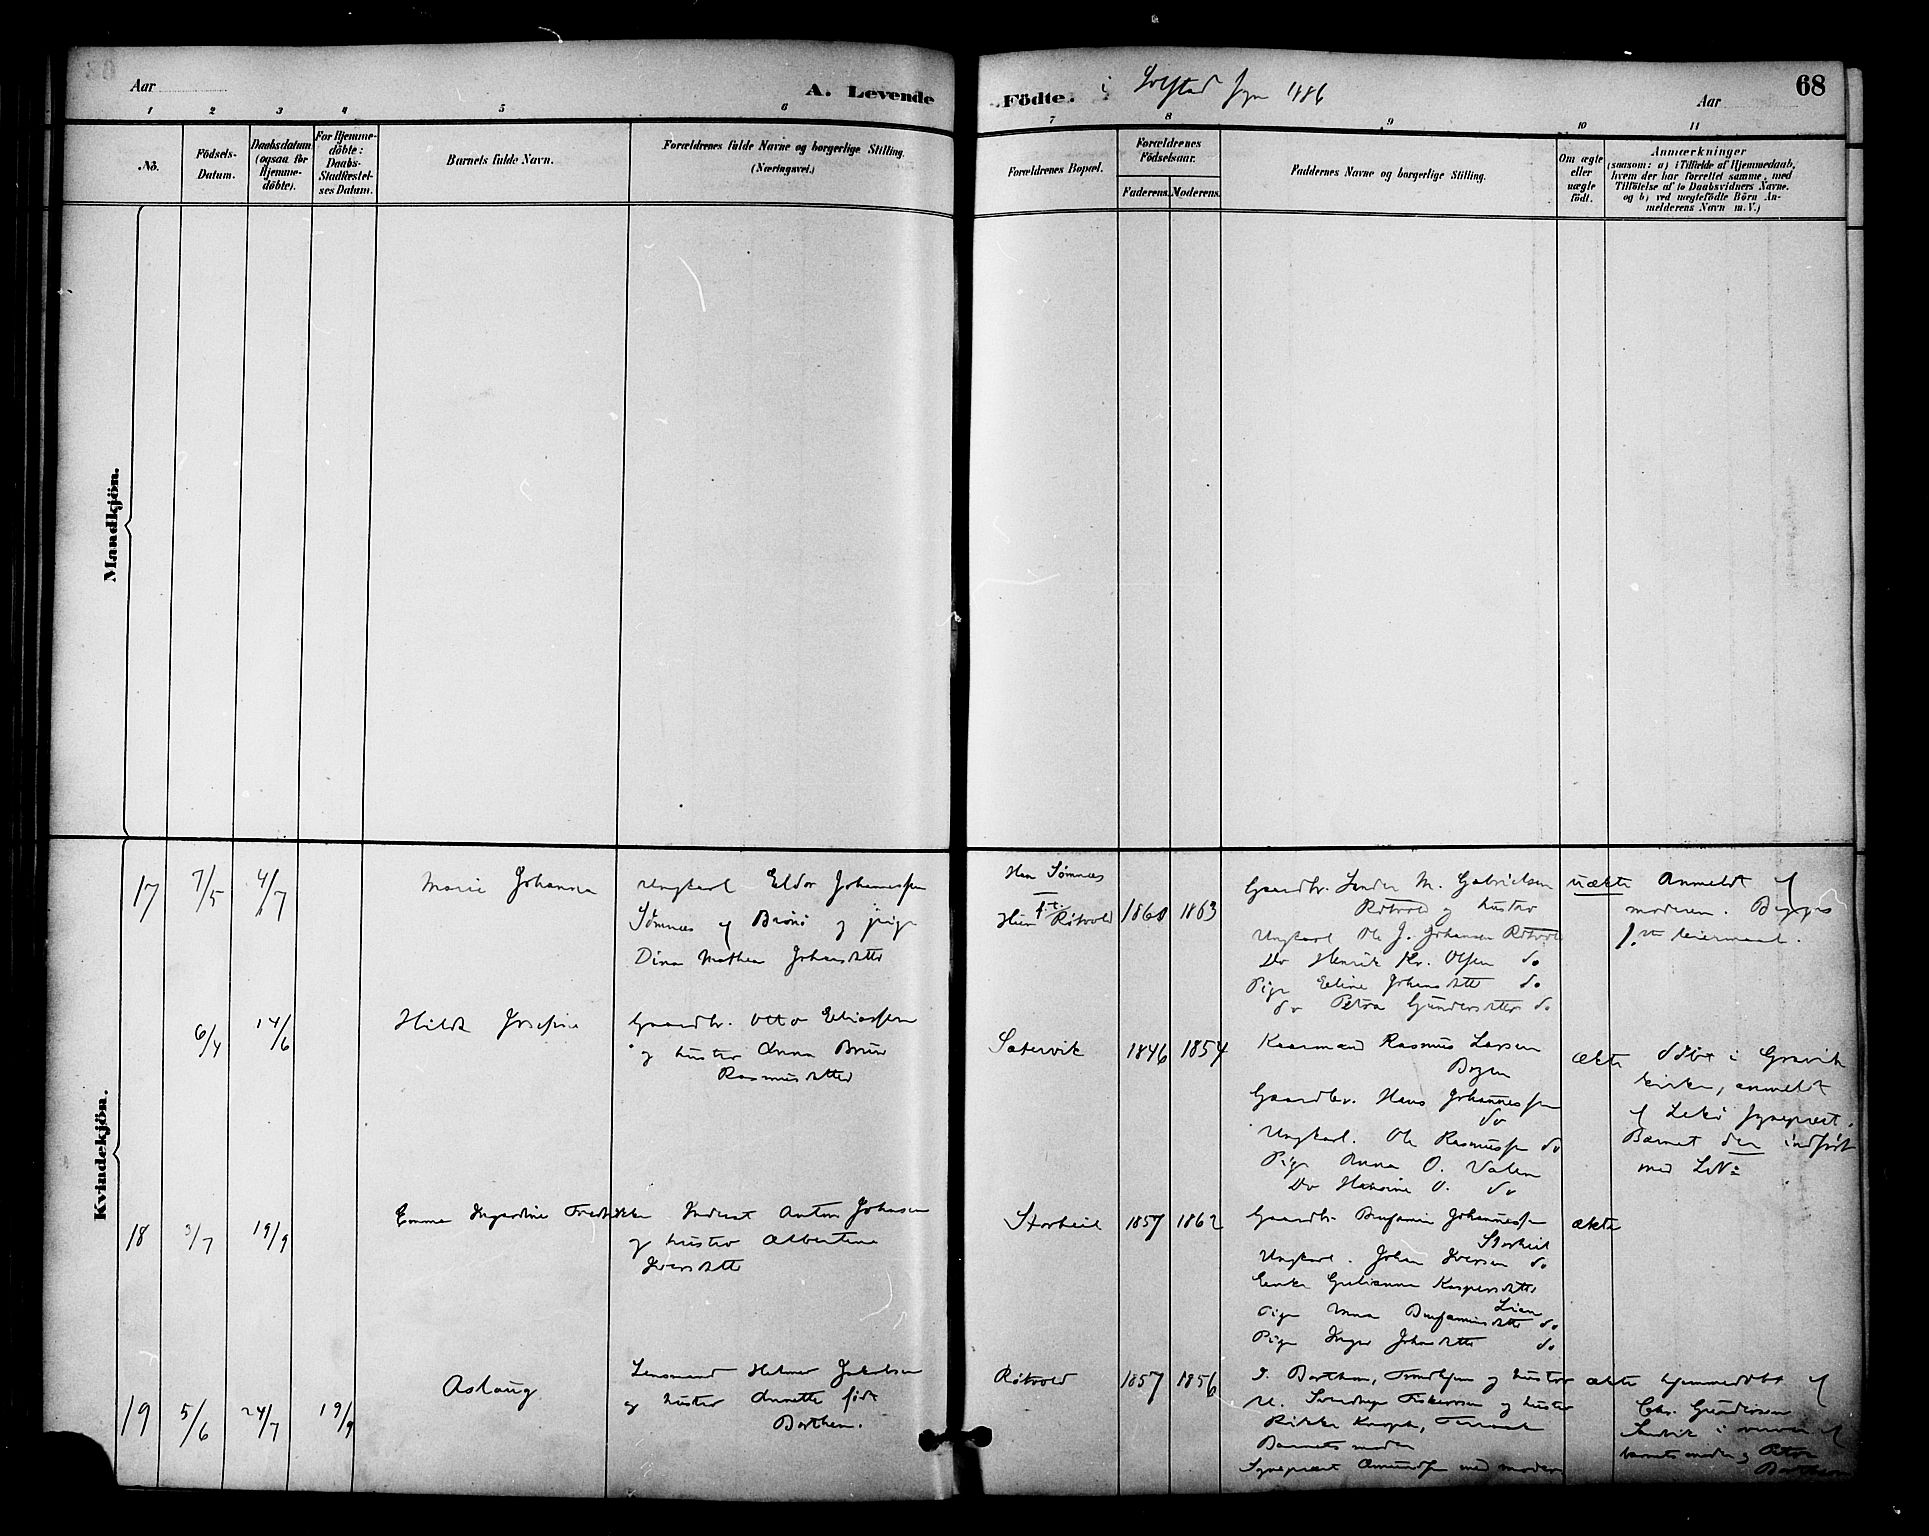 Aar
A. Levende
Födte. i Solstad sogn 1886
Aar
68
1 2 3 4 5 6 7 8 9 10 11
No.
Födsels-
Datum.
Daabsdatum
(ogsaa for
Hjemme-
döbte).
For Hjemme-
döbte:
Daabs-
Stadfæstel-
ses Datum.
Barnets fulde Navn.
Forældrenes fulde Navne og borgerlige Stilling.
(Næringsvei.)
Forældrenes Bopæl.
Forældrenes
Födselsaar.
Faderens.
Moderens.
Faddernes Navne og borgerlige Stilling.
Om ægte
eller
uægte
födt.
Anmærkninger
(saasom: a) i Tilfælde af Hjemmedaab,
hvem der har forrettet samme, med
Tilföielse af to Daabsvidners Navne.
og b) ved uægtefödte Börn An-
melderens Navn m.V.)
Mandkjön.
Kvindekjön.
17
7/5
4/7
Marie Johanna
Ungkarl Eldor Johannessen
Sømnes af Brønø og pige
Dina Mathea Johansdatter
Han Sømnes
Hun Røtvold
1860
1863
Gaardbr. Sander M. Gabrielsen
Røtvold og hustro
Ungkarl Ole J. Johansen Røtvold
Do Henrik Kr. Olsen do
Pige Eline Johansdtt do
do Petra Gundersdtter do
uækte
Anmeldt af
moderen. Begges
1.ste leiermaal.
6/4
14/6
Hilda Josefine
Gaardbr. Otto Eliassen
og hustro Anna Brun
Rasmusdatter
Sætervik
1846
1854
Kaarmand Rasmus Larsen
Bogen
Gaardbr. Hans Johannessen
do
Ungkarl. Ole Rasmussen do
Pige Anna O. Valen
Do Hansine O. do
ækte
døbt i Gravik
kirke, anmeldt
af Lekø sognepræst.
Barnet der indført
med LNo
18
3/7
19/9
Emma Ingardine Fredrikke
Inderst Anton Johnsen
og hustro Albertine
Iversdatter
Storheil
1857
1862
Gaardbr. Benjamin Johannessen
Storheil
Ungkarl. Johan Iversen do
Enke Gulianna Kaspersdatter
Lien
Pige Anna Benjaminsdatter do
Pige Inger Johansdatter do
ækte
19
5/6
24/7
19/9
Aslaug
Lensmand Helmer Jakobsen
og hustro Annette født
Barthen.
Røtvold
1857
1856
Barthen, Trondhjem og hustro
og hustro
Rikke
Barnets moder
Sognepræst Amundsen med moder
ækte
hjemmedøbt af
Chr. Gundersen
Sandvik i nærvær af
barnets moder og Petra
Barthen